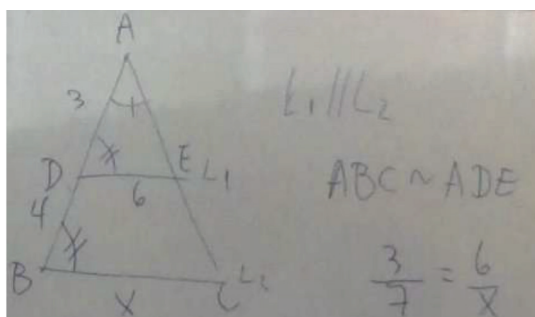 A
3
D
E
L1
6
4
B
X
C
L2
L1//L2
ABC ~ ADE
3/7 = 6/X